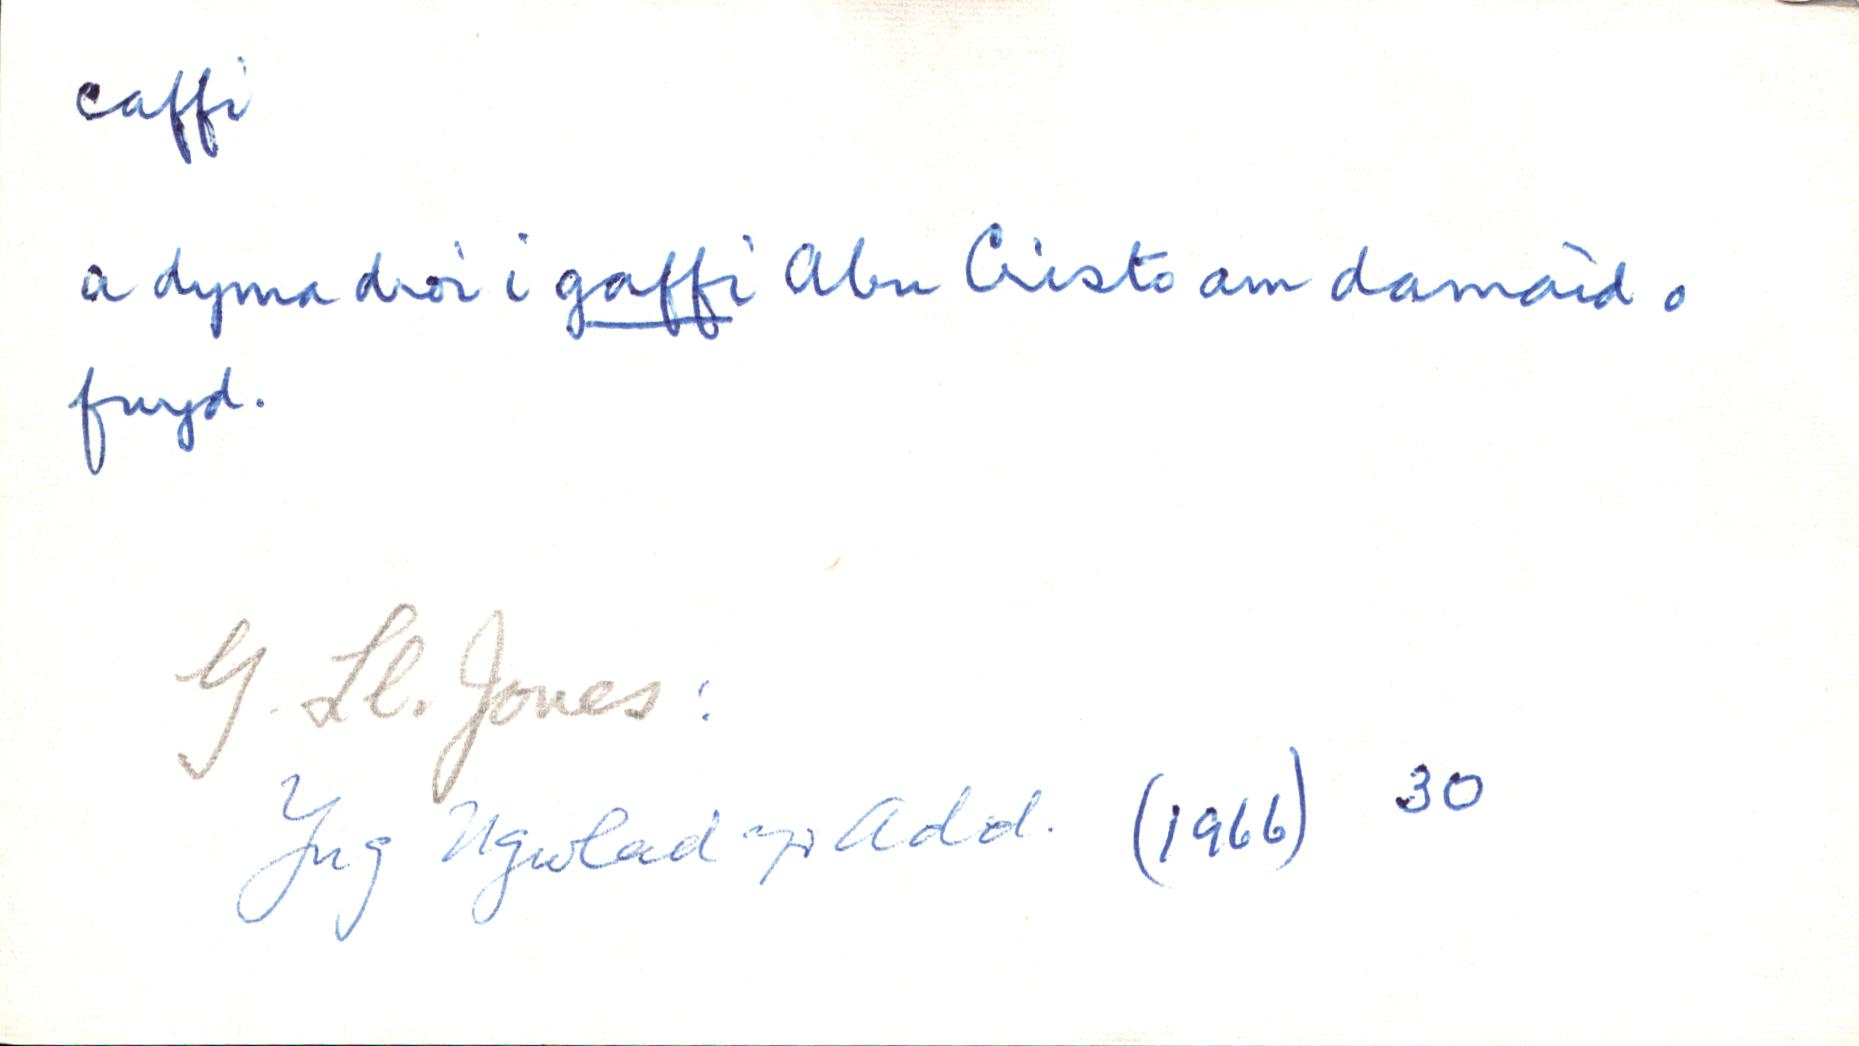 caffi
a dyma droi i gaffi Abu Cristo am damaid o
fwyd.
G. Ll. Jones:
Yng Ngwlad yr Add. (1966) 30